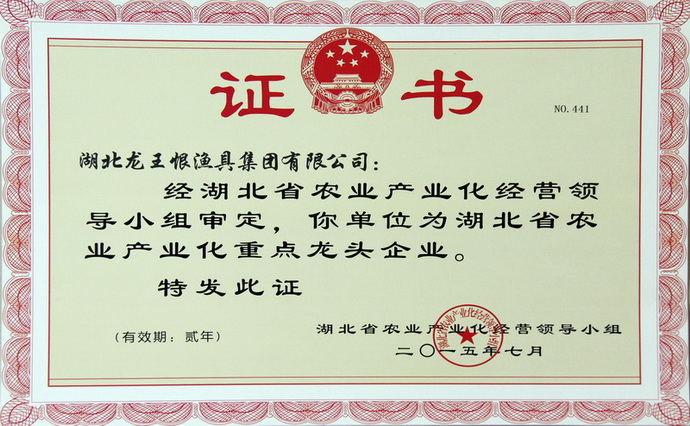 证书
NO. 441
湖北龙王恨渔具集团有限公司：
经湖北省农业产业化经营领
导小组审定，你单位为湖北省农
业产业化重点龙头企业。
特发此证
（有效期：贰年）
湖北省农业产业化经营领导小组
二〇一五年七月